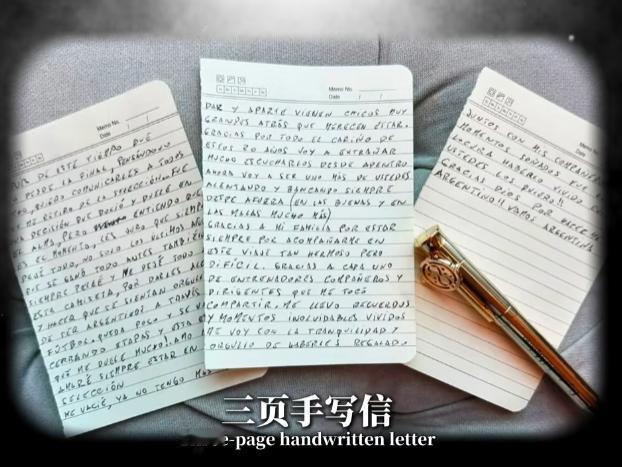 DE ESTE TIEMPO QUE
LA FINAL, PENSANDOLO
QUIERO COMUNICARLES A TODOS
ME RETIRO DE LA SELECCIÓN. FUE
DECISIÓN QUE DOLIÓ Y DUELE EN
EL ALMA, PERO ENTIENDO QUE
ES EL MOMENTO. LES JURO QUE SIEMPRE
DEJÉ TODO, NO SOLO LOS ÚLTIMOS AÑOS
QUE SE GANÓ TODO, ANTES TAMBIÉN
SIEMPRE PELEÉ Y ME DEJÉ TODO
ESTA CAMISETA, POR DARLES ALE
Y HACER QUE SE SIENTAN ORGULL
DE SER ARGENTINOS A TRAVÉS
FÚTBOL. QUEDA POCO Y SE VA
CERRANDO ETAPAS Y ESTA ES
QUE ME DUELE MUCHO. AMO
AMARÉ SIEMPRE ESTAR EN
SELECCIÓN
ME VACIÉ, YA NO TENGO MÁS
Memo No.
Date / /
DAR Y APARTE VIENEN CHICOS MUY
GRANDES ATRÁS QUE MERECEN ESTAR.
GRACIAS POR TODO EL CARIÑO DE
ESTOS 20 AÑOS VOY A EXTRAÑAR
MUCHO ESCUCHARLOS DESDE ADENTRO
AHORA VOY A SER UNO MÁS DE USTEDES
ALENTANDO Y BANCANDO SIEMPRE
DESDE AFUERA (EN LAS BUENAS Y EN
LAS MALAS MUCHO MÁS)
GRACIAS A MI FAMILIA POR ESTAR
SIEMPRE POR ACOMPAÑARME EN
ESTE VIAJE TAN HERMOSO PERO
DIFÍCIL. GRACIAS A CADA UNO
DE ENTRENADORES COMPAÑEROS Y
DIRIGENTES QUE ME TOCÓ
COMPARTIR. ME LLEVO RECUERDOS
Y MOMENTOS INOLVIDABLES VIVIDOS
ME VOY CON LA TRANQUILIDAD Y
ORGULLO DE HABERLES REGALADO
Memo No.
Date / /
JUNTOS CON MIS COMPAÑER
MOMENTOS SOÑADOS FUE
LOCURA HABERLO VIVIDO C
USTEDES LOS QUIERO!!
GRACIAS DIOS POR HACERME
ARGENTINO!! VAMOS ARGENTINA
Memo No.
Date
三页手写信
-page handwritten letter